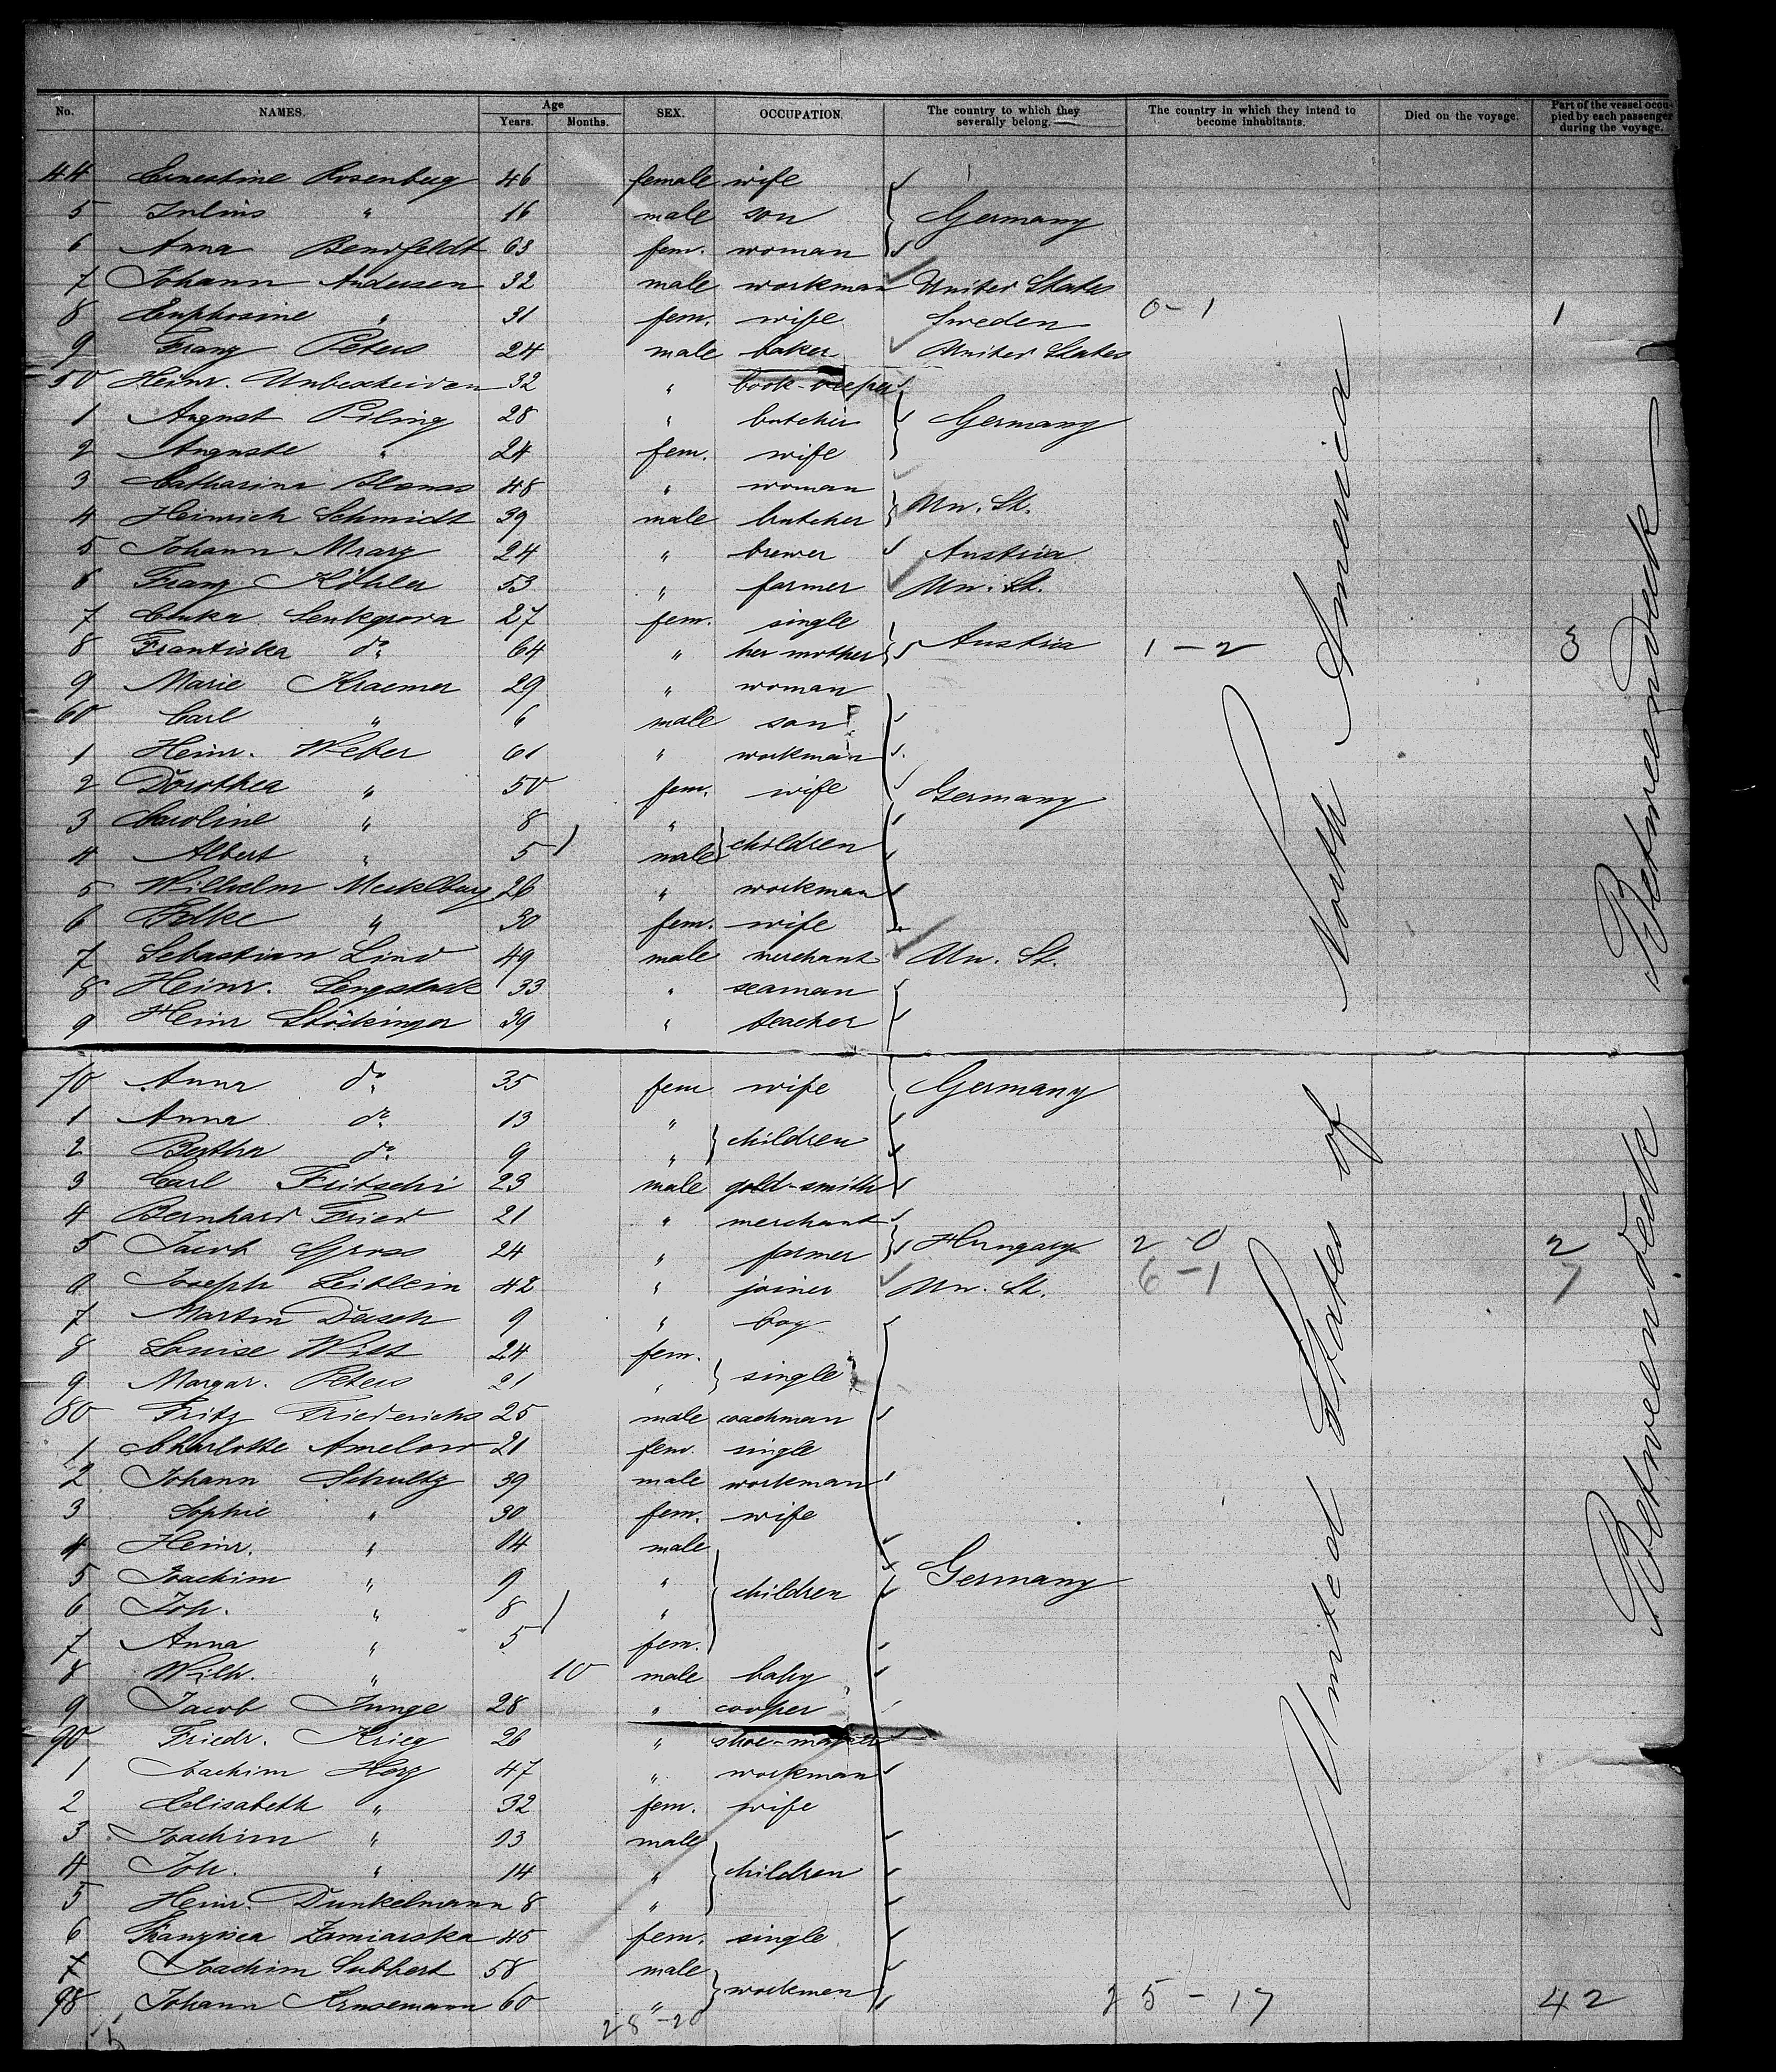 No. NAMES. Age Years. Months. SEX. OCCUPATION. The country to which they severally belong. The country in which they intend to become inhabitants. Died on the voyage. Part of the vessel occupied by each passenger during the voyage.
44 Ernestine Rosenberg 46 female wife
5 Julius " 16 male son Germany
6 Anna Bendfeldt 63 fem. woman
7 Johann Andersen 32 male workman United States
8 Euphrosine " 31 fem. wife Sweden 0-1 1
9 Franz Peters 24 male baker United States
50 Heinr. Unbescheiden 32 " book-keeper
1 August Piling 28 " butcher Germany
2 Auguste " 24 fem. wife
3 Catharina 48 " woman
4 Heinrich Schmidt 39 male butcher Un. St.
5 Johann Mrary 24 " brewer Austria
6 Franz Köhler 53 " farmer Un. St.
7 27 fem. single
8 Frantiska do. 64 " her mother Austria 1-2 3
9 Marie Kraemer 29 " woman
60 Carl " 6 male son
1 Heinr. Weber 61 " workman
2 Dorothea " 50 fem. wife Germany
3 Caroline " 8 "
4 Albert " 5 male children
5 Wilhelm Mecklburg 26 " workman
6 " 30 fem. wife
7 Sebastian Lind 49 male merchant Un. St.
8 Heinr. Lengstack 33 " seaman
9 Heinr Stöckinger 39 " teacher
70 Anna do. 35 fem wife Germany
1 Anna do. 13 "
2 Bertha do. 9 " children
3 Carl Fritschi 23 male gold-smith
4 Bernhard Fried 21 " merchant
5 Jacob Gross 24 " farmer Hungary 2-0 2
6 Joseph Leitlein 42 " joiner Un. St. 6-1 7
7 Martin Dasch 9 " boy
8 Louise Witt 24 fem.
9 Margar. Peters 21 " single
80 Fritz Friederichs 25 male coachman
1 Charlotte Amelow 21 fem. single
2 Johann Schultz 39 male workman
3 Sophie " 30 fem. wife
4 Heinr. " 14 male
5 Joachim " 9 " children Germany
6 Joh. " 8 "
7 Anna " 5 fem.
8 Wilh. " 10 male baby
9 Jacob Junge 28 " cooper
90 Friedr. Krieg 26 " shoe-maker
1 Joachim Herz 47 " workman
2 Elisabeth " 32 fem. wife
3 Joachim " 13 male
4 Joh. " 14 " children
5 Heinr. Dunkelmann 8 "
6 Franzisca Zamiarska 45 fem. single
7 Joachim Lubbert 58 male
98 Johann 60 " workmen 25-17 42
28-20
United States of North America
Betweendeck
Betweendeck